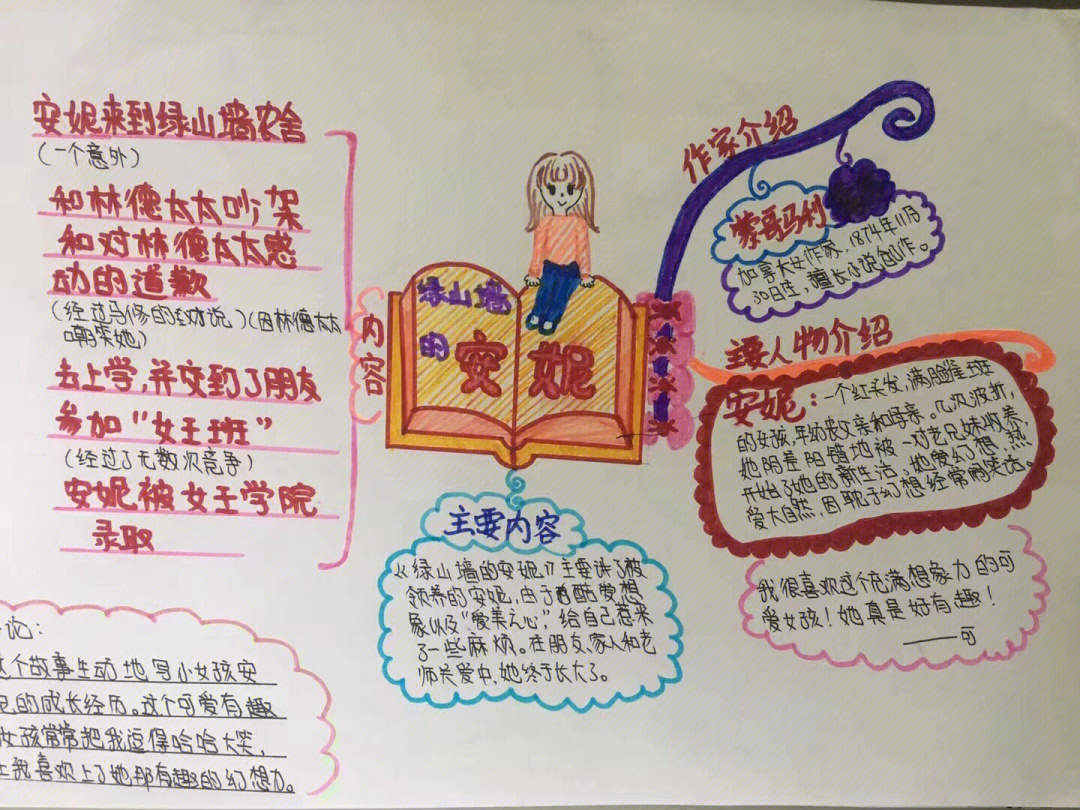 安妮来到绿山墙农舍
(一个意外)
和林德太太吵架
和对林德太太感
动的道歉
(经过马修的劝说)(因林德太太
嘲笑她)
去上学,并交到了朋友
参加“女王班”
(经过了无数次竞争)
安妮被女王学院
录取
内容
绿山墙
的安妮
作家介绍
蒙哥玛利
加拿大女作家,1874年11月
30日生,擅长小说创作。
主要人物介绍
安妮:一个红头发,满脸雀斑
的女孩,年幼丧父亲和母亲。几次波折,
她阴差阳错地被一对老兄妹收养,
开始了她的新生活,她爱幻想,热
爱大自然,因耽于幻想经常闹笑话。
我很喜欢这个充满想象力的可
爱女孩!她真是好有趣!
——可
主要内容
《绿山墙的安妮》主要讲了被
领养的安妮,由于酷爱想
象以及“爱美之心”,给自己惹来
了一些麻烦。在朋友、家人和老
师关爱中,她终于长大了。
记:
这个故事生动地写小女孩安
妮的成长经历。这个可爱有趣
女孩常常把我逗得哈哈大笑,
让我喜欢上了她那有趣的幻想力。